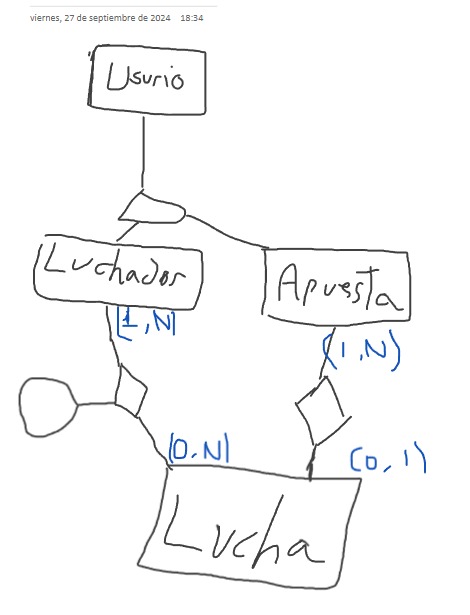 viernes, 27 de septiembre de 2024 18:34
Usurio
Luchador
Apuesta
(1,N)
(1,N)
(0,N)
(0,1)
Lucha